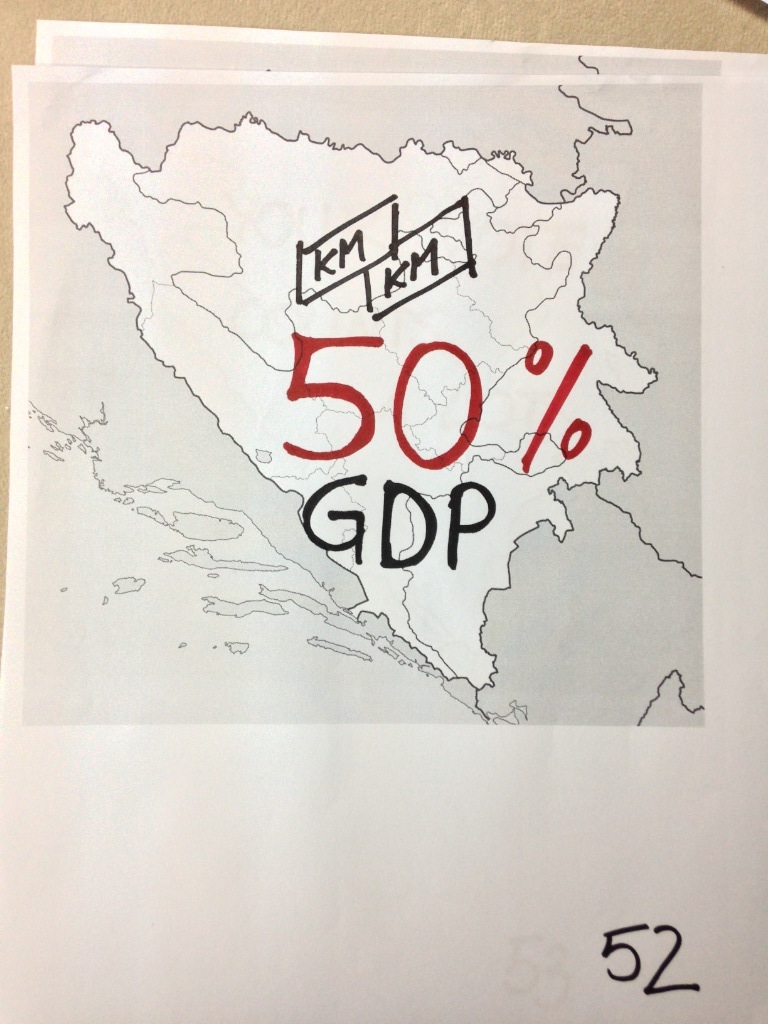 KM
KM
50%
GDP
52
53